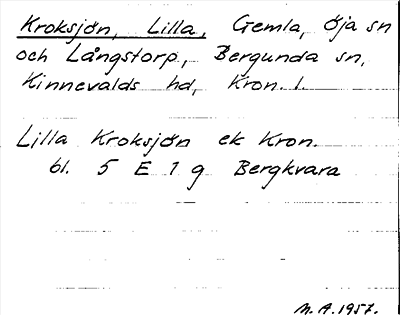 Kroksjön, Lilla, Gemla, Öja sn
och Långstorp, Bergunda sn,
Kinnevalds hd, Kron. l.
Lilla Kroksjön ek Kron.
bl. 5 E 1 g Bergkvara
M.A. 1957.